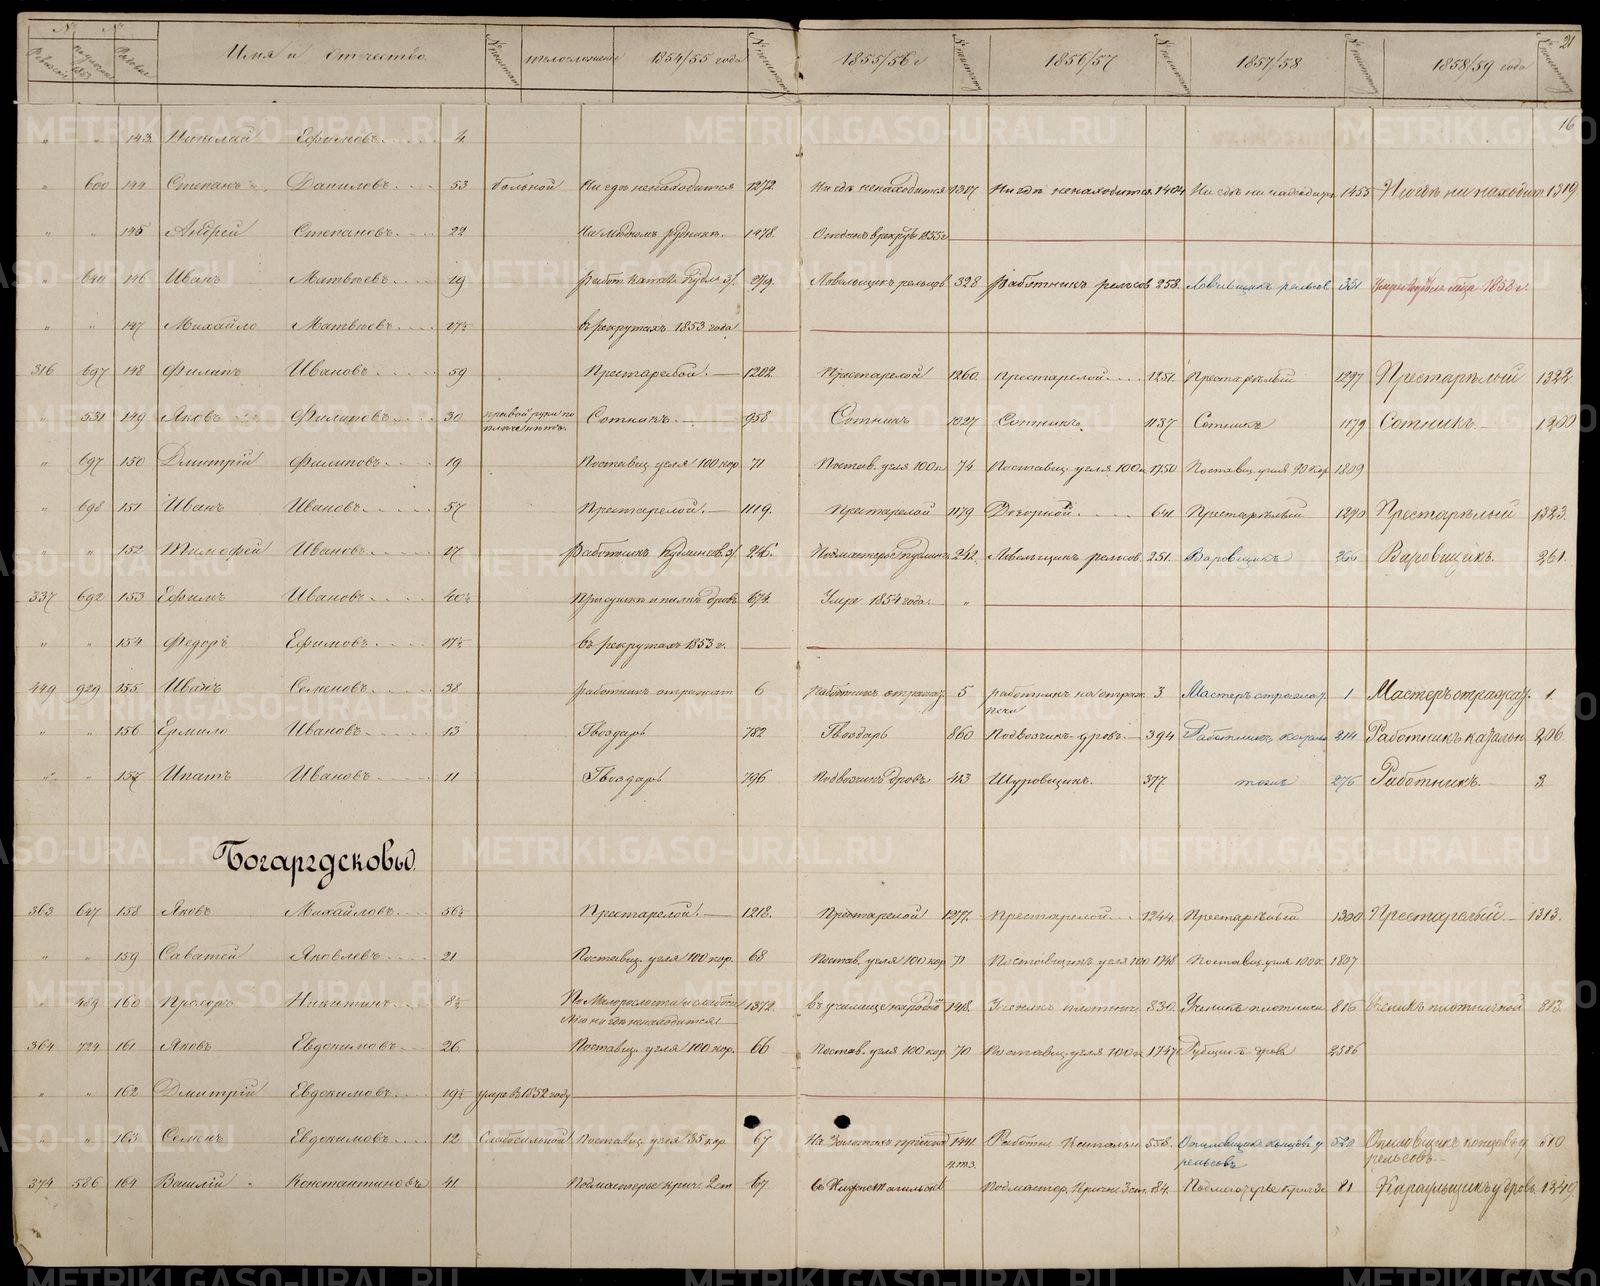 № № 21
Ревизской Фамильн. Имя и отчество № по списку телосложение 1854/55 года № по списку 1855/56 г № по списку 1856/57 № по списку 1857/58 № по списку 1858/59 года № по списку
16
" " 143 Николай Ефимовъ 4
" 600 144 Степанъ Даниловъ 53 больной Ни гдѣ ненаходится 1272 Ни гдѣ ненаходится 1317 Ни гдѣ ненаходится 1404 Ни гдѣ ни находится 1455 Ни гдѣ ни находит 1319
" " 145 Андрей Степановъ 22 На мѣдномъ рудникѣ 1478. Отданъ в рекруты 1855 г
" 640 146 Иванъ Матвѣевъ 19 279. Ловельщикъ рельсовъ 328 Работникъ рельсов 258. Ловельщикъ рельсов 331 1858 г.
" " 147 Михайло Матвѣевъ 17½ въ рекрутахъ 1853 года
316 697 148 Филипъ Ивановъ 59 Престарелой 1202 Престарелой 1260. Престарелой 1251. Престарѣлый 1297 Престарѣлый 1322
" 531 149 Яковъ Филиповъ 30 правой руки по плеча нѣтъ. Сотникъ. 958 Сотникъ 1027 Сотникъ. 1137 Сотникъ 1179 Сотникъ. 1200
" 697 150 Дмитрій Филиповъ 19 Поставщ. угля 100 кор 71 Постав. угля 100 к 74 Поставщ. угля 100 к 1750 Поставщ. угля 90 кор 1809
" 698 151 Иванъ Ивановъ 57 Престарелой 1119. Престарелой 1179 Дозорной 641 Престарѣлый 1290 Престарѣлый 1323.
" " 152 Тимофей Ивановъ 27 Работникъ Пудлингов. 246. Подмастерье пудлинг 242. Ловельщикъ рельсов 251. Варовщикъ 266 Варовщикъ. 261.
337 692 153 Ефимъ Ивановъ 40½ При сушкѣ и пилкѣ дровъ 674. Умре 1854 года. "
" " 154 Федоръ Ефимовъ 17½ въ рекрутахъ 1853 г.
449 929 155 Иванъ Семеновъ 38 работникъ отражат 6 работникъ отражат. 5 работникъ на отраж. печи 3 Мастеръ отражат. 1 Мастеръ отражат. 1.
" " 156 Ермило Ивановъ 13 Гвоздарь 782 Гвоздарь 860 Подвозчикъ дровъ 394 Работникъ катальн 214 Работникъ катальн 206.
" " 157 Ипатъ Ивановъ 11 Гвоздарь 796 Подвозчикъ дровъ 413 Шуровщикъ. 377. тоже 276 Работникъ. 2
363 647 158 Яковъ Михайловъ 56½ Престарелой 1218. Престарелой 1277. Престарелой 1244. Престарѣлый 1300 Престарѣлый 1313.
" " 159 Саватей Яковлевъ 21 Поставщ. угля 100 кор. 68 Постав. угля 100 кор 71 Поставщикъ угля 100 1748 Поставщ. угля 100 к 1807
" 489 160 Прохоръ Никитинъ 8½ По Малорослости и слабости ни гдѣ ненаходится 1372. въ училище народно 1418. Ученикъ плотнич. 830. Ученикъ плотнични 816 Ученикъ плотничной 813.
364 724 161 Яковъ Евдокимовъ 26. Поставщ. угля 100 кор. 66 Постав. угля 100 кор 70 Поставщ. угля 100 к 1747 Рубщикъ дровъ 2586
" " 162 Дмитрій Евдокимовъ 19½ умре въ 1852 году
" " 163 Семенъ Евдокимовъ 12 Слабосильной Поставщ. угля 35 кор. 67 1441. Работник Катальн 558. Опиловщикъ концовъ у рельсовъ 520 Опиловщикъ концовъ у рельсовъ 510
374 586 164 Василій Константиновъ 41 Подмастерье крич. 2 ст 67 въ Нижнетагильск Подмастер. Кричн 3 ст. 84. Подмастерье крич 3 с 81 Караульщикъ у дровъ 1249